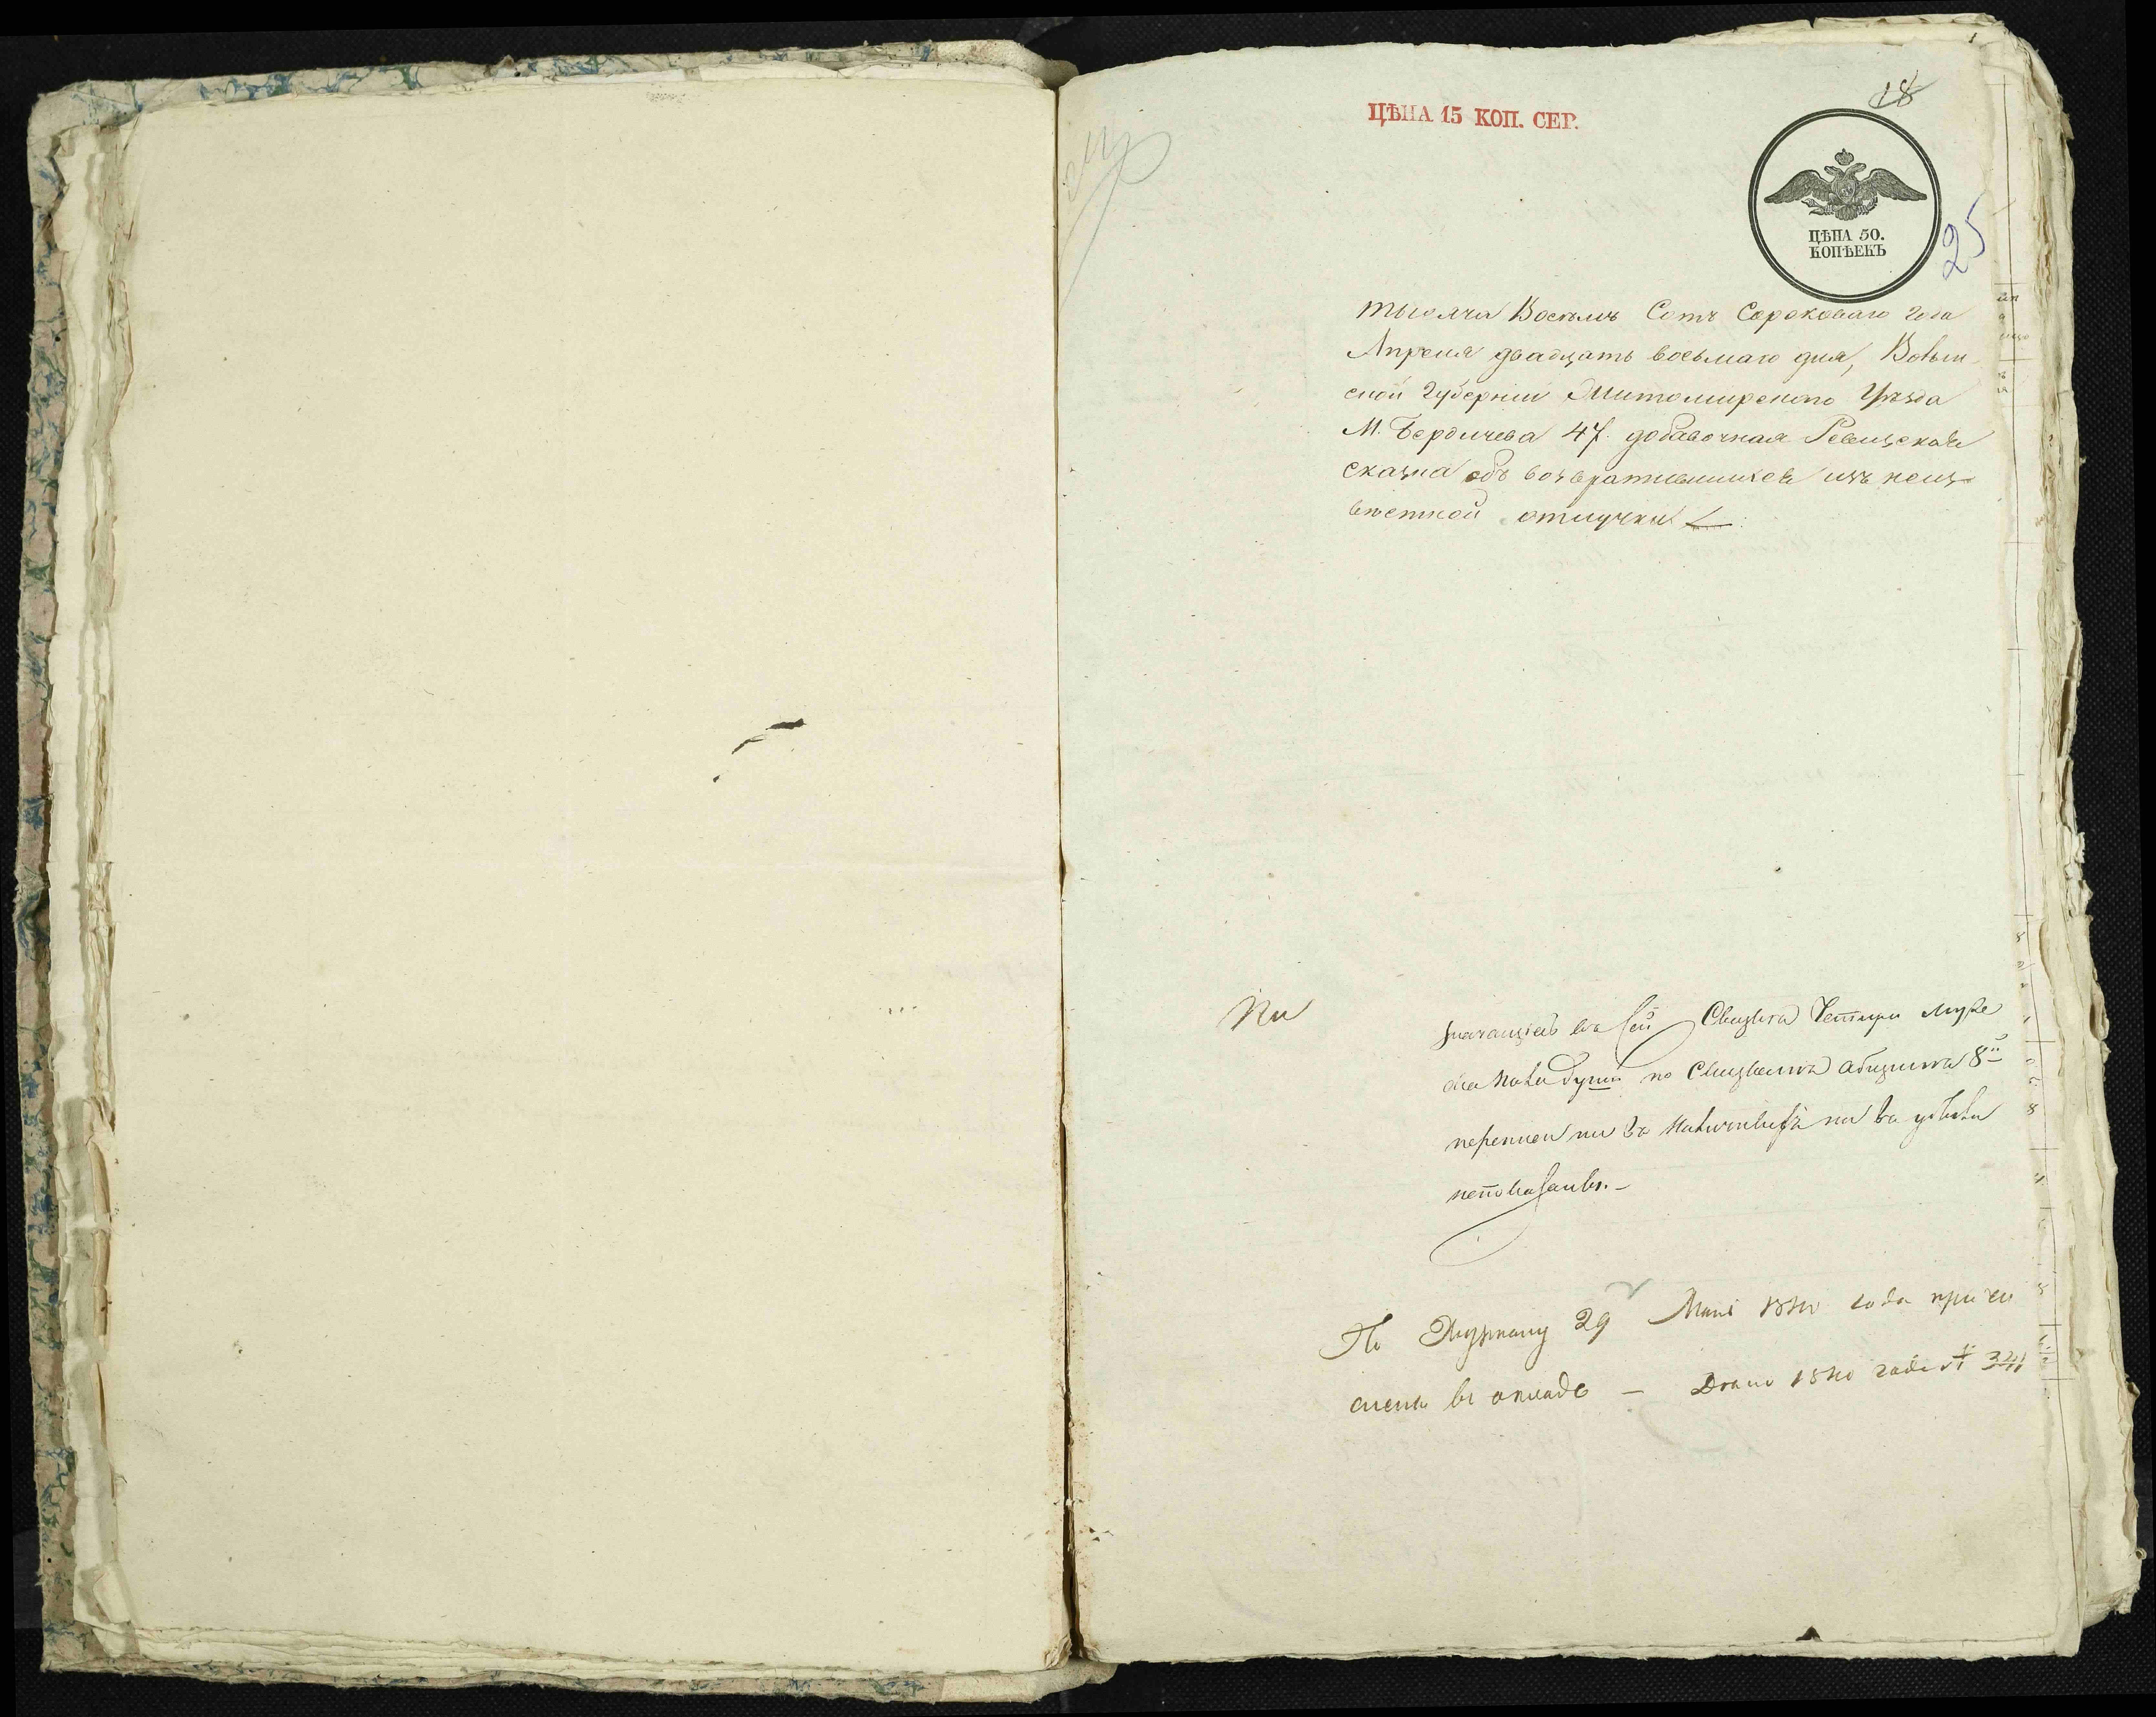 18
ЦѢНА 15 КОП. СЕР.
ЦѢНА 50.
КОПѢЕКЪ
25
тысяча Восемъ Сотъ Сороковаго года
Апреля двадцать восьмаго дня, Волын
ской Губерніи Житомирского Уѣзда
М. Бердичева 47. добавочная Ревизская
сказка объ возвратившихся изъ неиз
вѣстной отлучки
Значащіесъ въ сей Четыри муже
по 8й
ни въ ни въ
непоказаны. —
По Журналу 29 Маія 1840 года причи
слены въ окладъ — Дѣло 1840 года № 341